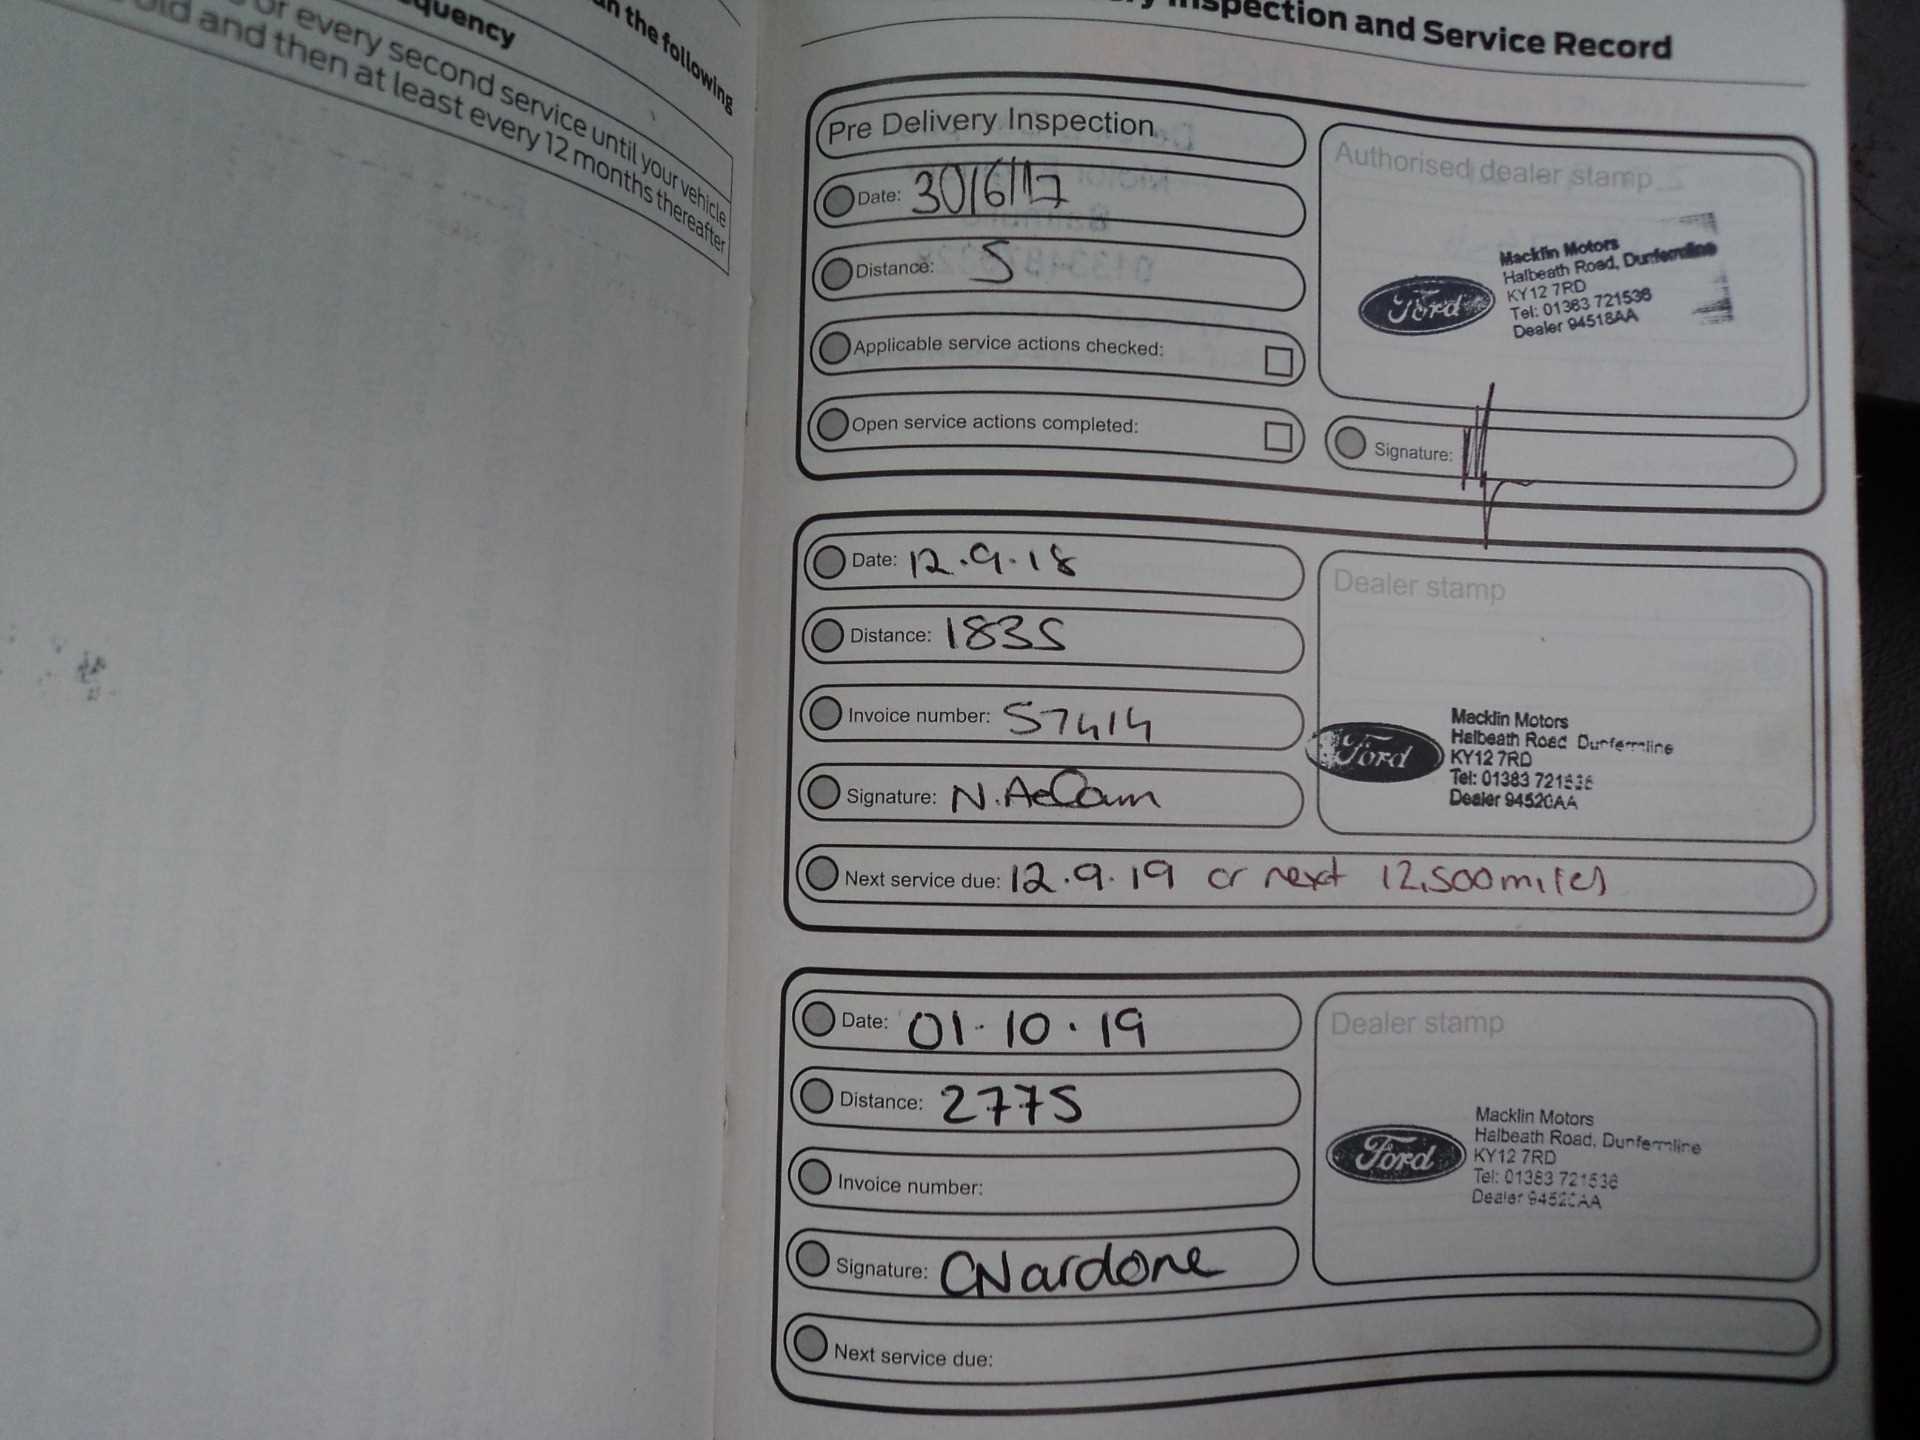 an the following
quency
or every second service until your vehicle
old and then at least every 12 months thereafter
Inspection and Service Record
Pre Delivery Inspection
Date: 30/6/17
Distance: 5
Applicable service actions checked:
Open service actions completed:
Authorised dealer stamp
Ford
Macklin Motors
Halbeath Road, Dunfermline
KY12 7RD
Tel: 01383 721536
Dealer 94518AA
Signature:
Date: 12.9.18
Distance: 1835
Invoice number: 57414
Signature: N.
Next service due: 12.9.19 or next 12,500 miles
Dealer stamp
Ford
Macklin Motors
Halbeath Road Dunfermline
KY12 7RD
Tel: 01383 721536
Dealer 94520AA
Date: 01.10.19
Distance: 2775
Invoice number:
Signature: CNardone
Next service due:
Dealer stamp
Ford
Macklin Motors
Halbeath Road, Dunfermline
KY12 7RD
Tel: 01383 721536
Dealer 94520AA